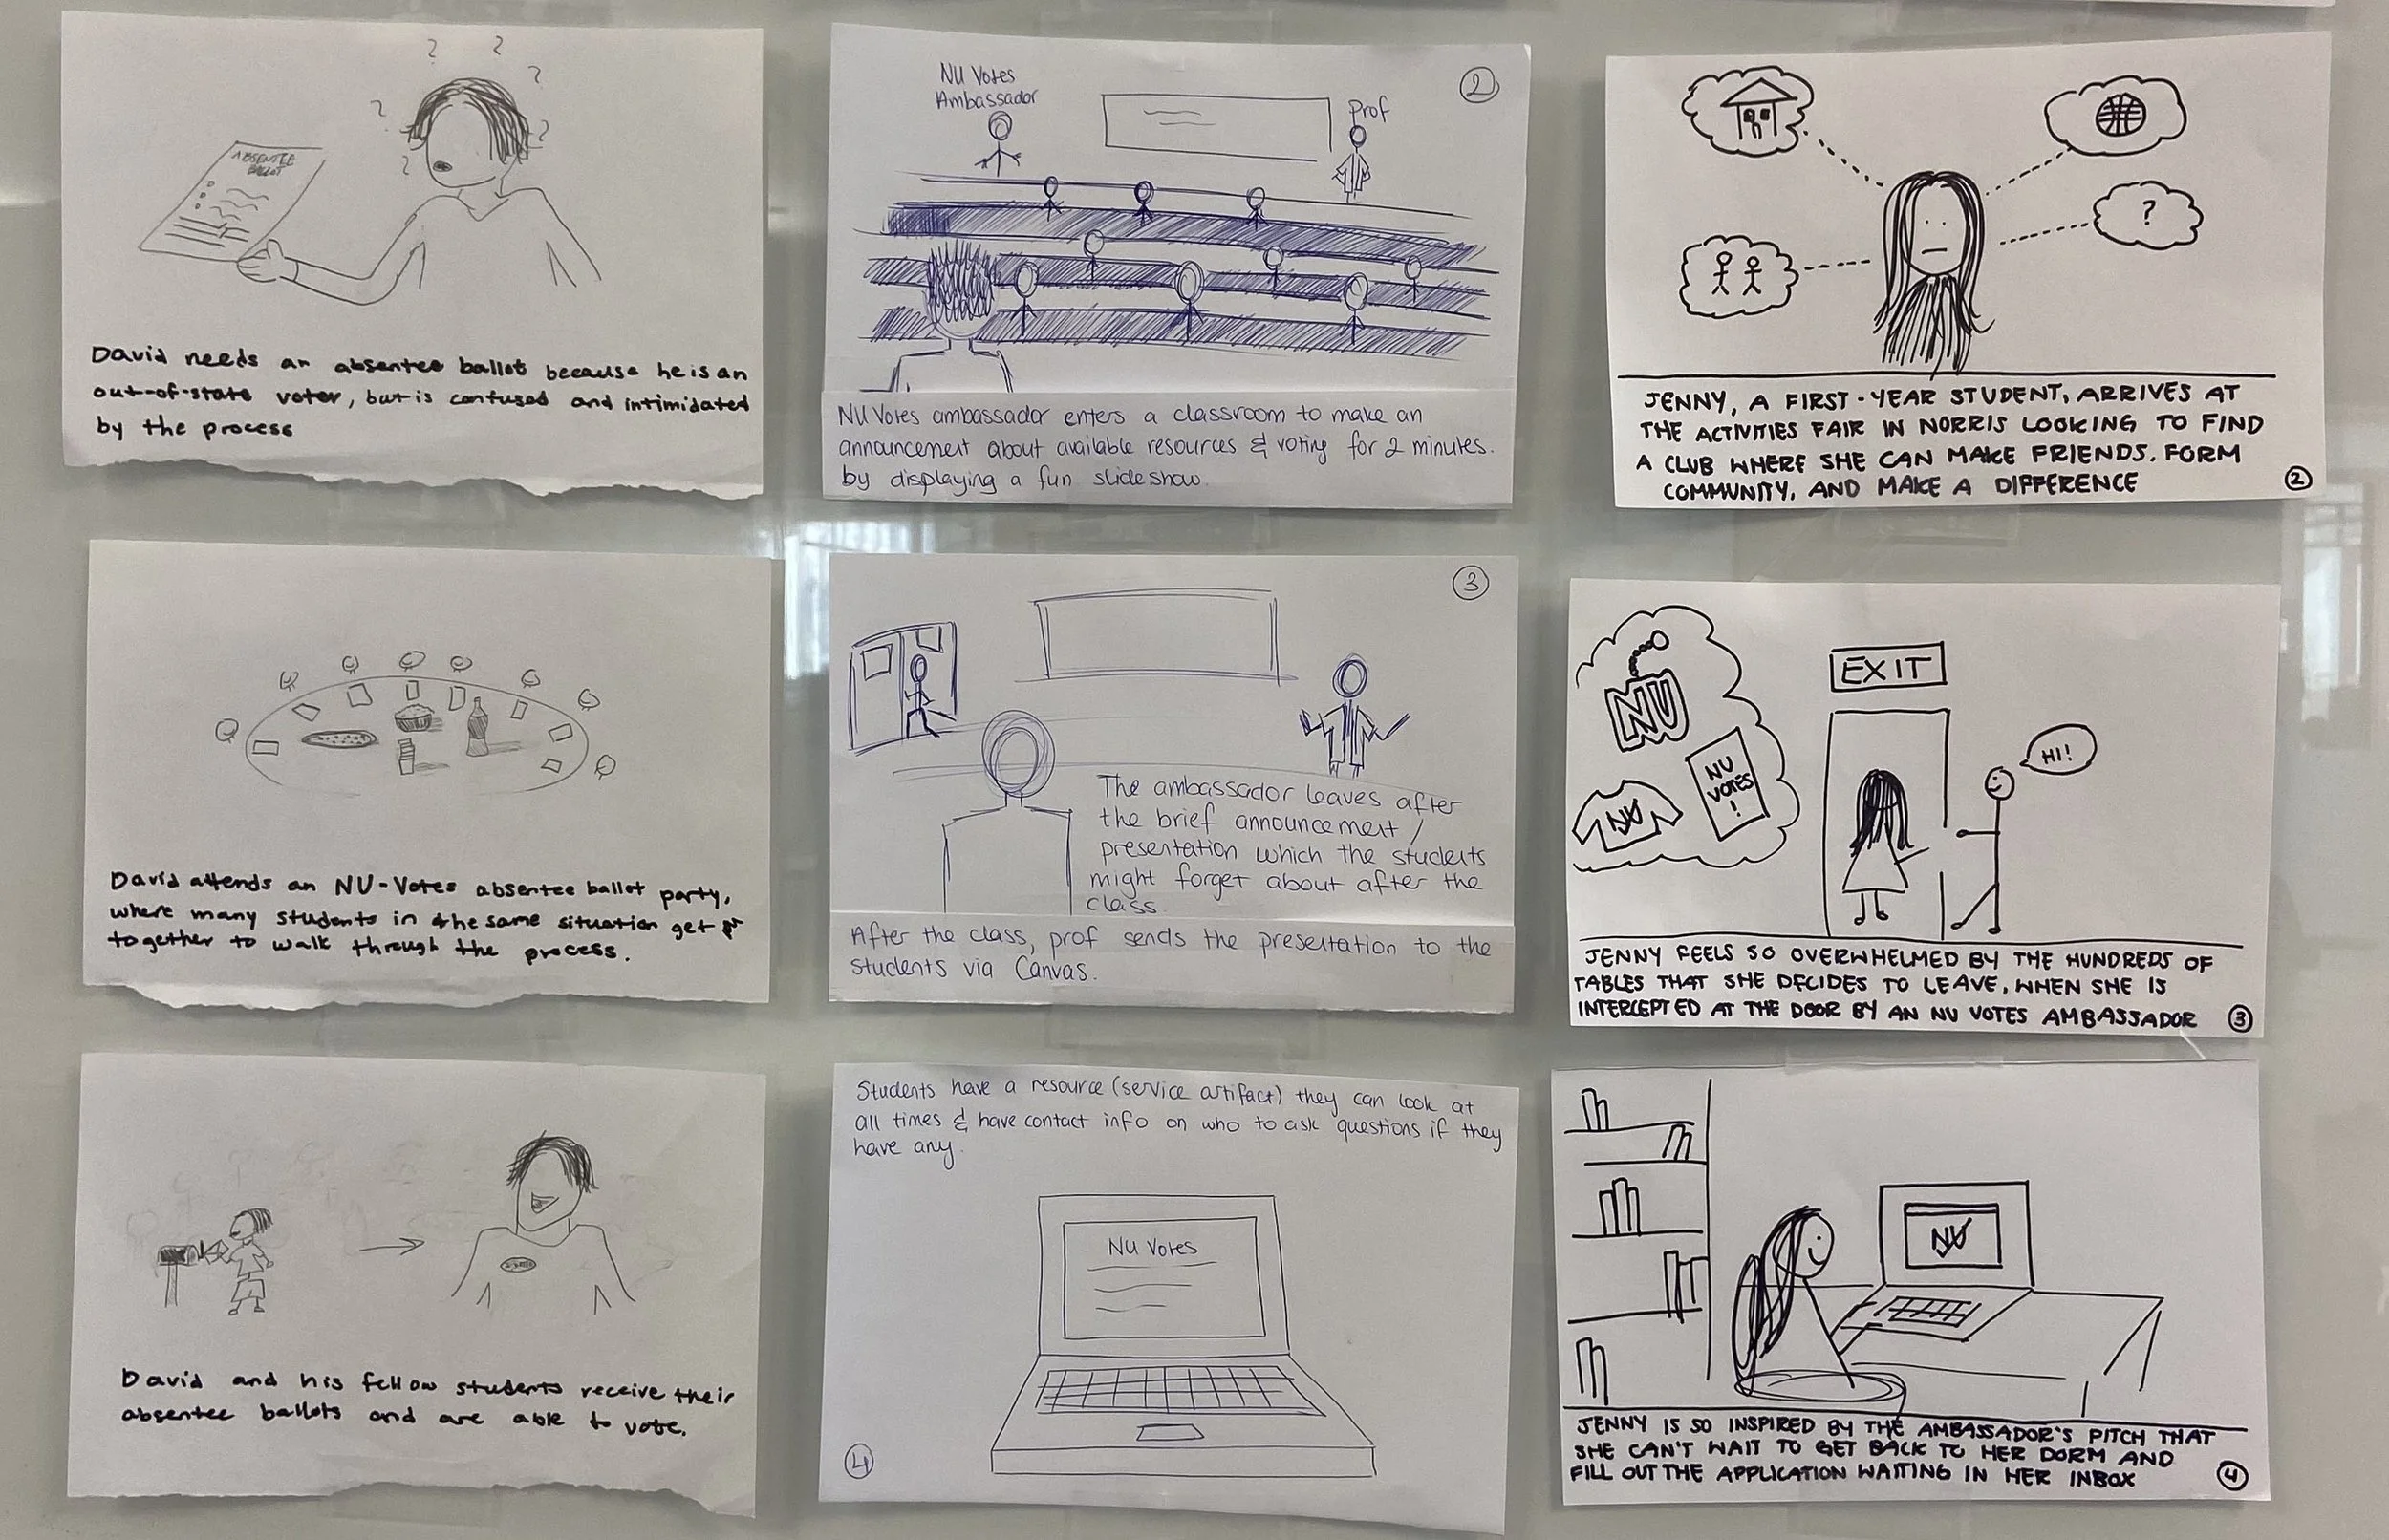 ? ? ? ? ? ?
ABSENTEE
BALLOT
David needs an absentee ballot because he is an
out-of-state voter, but is confused and intimidated
by the process
David attends an NU-Votes absentee ballot party,
where many students in the same situation get
together to walk through the process.
David and his fellow students receive their
absentee ballots and are able to vote.
NU Votes
Ambassador
Prof
2
NU Votes ambassador enters a classroom to make an
announcement about available resources & voting for 2 minutes.
by displaying a fun slideshow.
3
The ambassador leaves after
the brief announcement /
presentation which the students
might forget about after the
class.
After the class, prof sends the presentation to the
students via Canvas.
Students have a resource (service artifact) they can look at
all times & have contact info on who to ask questions if they
have any.
NU Votes
4
?
JENNY, A FIRST-YEAR STUDENT, ARRIVES AT
THE ACTIVITIES FAIR IN NORRIS LOOKING TO FIND
A CLUB WHERE SHE CAN MAKE FRIENDS, FORM
COMMUNITY, AND MAKE A DIFFERENCE
2
NU
NU
VOTES
!
NU
EXIT
HI!
JENNY FEELS SO OVERWHELMED BY THE HUNDREDS OF
TABLES THAT SHE DECIDES TO LEAVE, WHEN SHE IS
INTERCEPTED AT THE DOOR BY AN NU VOTES AMBASSADOR
3
NU
JENNY IS SO INSPIRED BY THE AMBASSADOR'S PITCH THAT
SHE CAN'T WAIT TO GET BACK TO HER DORM AND
FILL OUT THE APPLICATION WAITING IN HER INBOX
4